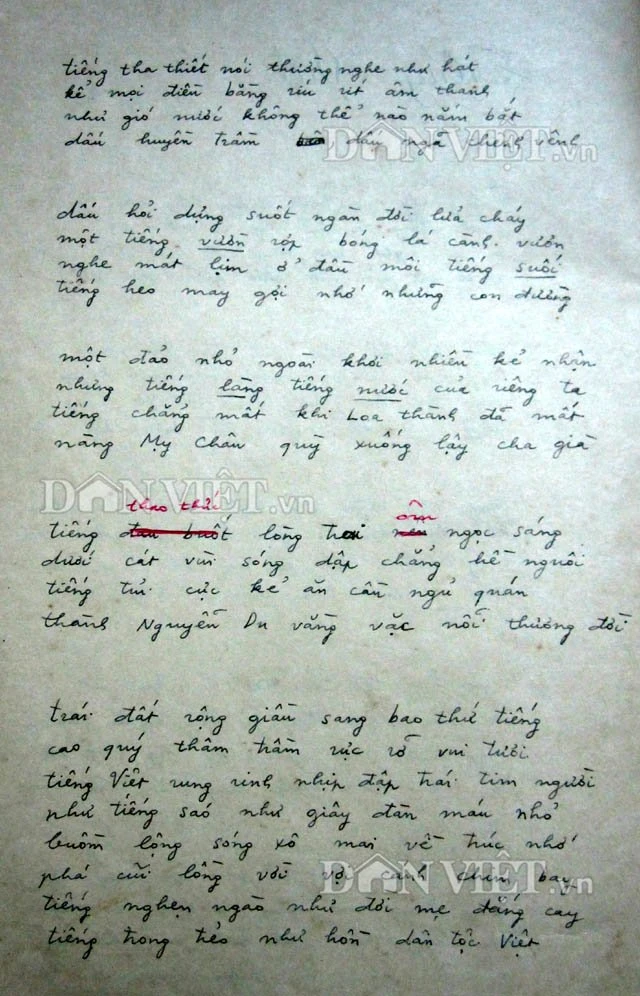 tiếng tha thiết nói thường nghe như hát
kể mọi điều bằng ríu rít âm thanh
như gió nước không thể nào nắm bắt
dấu huyền trầm dấu ngã chênh vênh
DÂN VIỆT.vn
dấu hỏi dựng suốt ngàn đời lửa cháy
một tiếng vườn rợp bóng lá cành vươn
nghe mát lịm ở đầu môi tiếng suối
tiếng heo may gợi nhớ những con đường
một đảo nhỏ ngoài khơi nhiều kẻ nhận
nhưng tiếng làng tiếng nước của riêng ta
tiếng chẳng mất khi Loa thành đã mất
nàng Mỵ Châu quỳ xuống lậy cha già
DÂN VIỆT.vn
thao thức ôm
tiếng đau buốt lòng trai nên ngọc sáng
dưới cát vùi sóng dập chẳng hề nguôi
tiếng tủi cực kẻ ăn cầu ngủ quán
thành Nguyễn Du vằng vặc nỗi thương đời
trái đất rộng giầu sang bao thứ tiếng
cao quý thâm trầm rực rỡ vui tươi
tiếng Việt rung rinh nhịp đập trái tim người
như tiếng sáo như giây đàn máu nhỏ
buồm lộng sóng xô mai về trúc nhớ
phá cũi lồng vời vợi cánh chim bay
DÂN VIỆT.vn
tiếng nghẹn ngào như đời mẹ đắng cay
tiếng trong trẻo như hồn dân tộc Việt